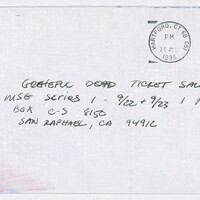 HARTFORD, CT
PM
1995
GRATEFUL DEAD TICKET SAL
MSG SERIES 1 - 9/22 + 9/23 1 P
BOX C-S 8150
SAN RAPHAEL, CA 94912